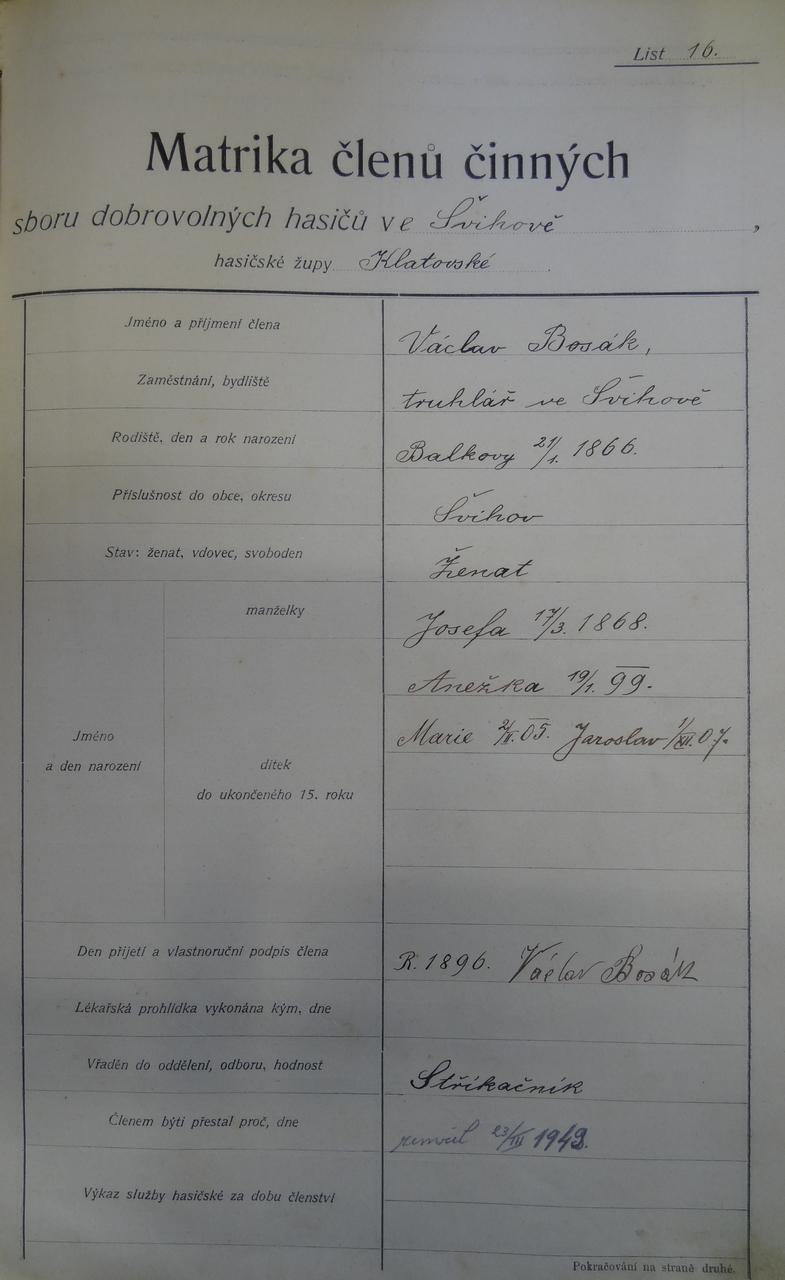 List 16.
Matrika členů činných
sboru dobrovolných hasičů ve Švihově,
hasičské župy Klatovské.
Jméno a příjmení člena Václav Bosák,
Zaměstnání, bydliště truhlář ve Švihově
Rodiště, den a rok narození Balkovy 21/1. 1866.
Příslušnost do obce, okresu Švihov
Stav: ženat, vdovec, svoboden Ženat
manželky Josefa 17/3. 1868.
Anežka 19/1. 99.
Jméno
a den narození
Marie 2/II. 05. Jaroslav 1/XII. 07.
dítek
do ukončeného 15. roku
Den přijetí a vlastnoruční podpis člena R. 1896. Václav Bosák
Lékařská prohlídka vykonána kým, dne
Vřaděn do oddělení, odboru, hodnost Stříkačník
Členem býti přestal proč, dne 23/III
Výkaz služby hasičské za dobu členství
Pokračování na straně druhé.